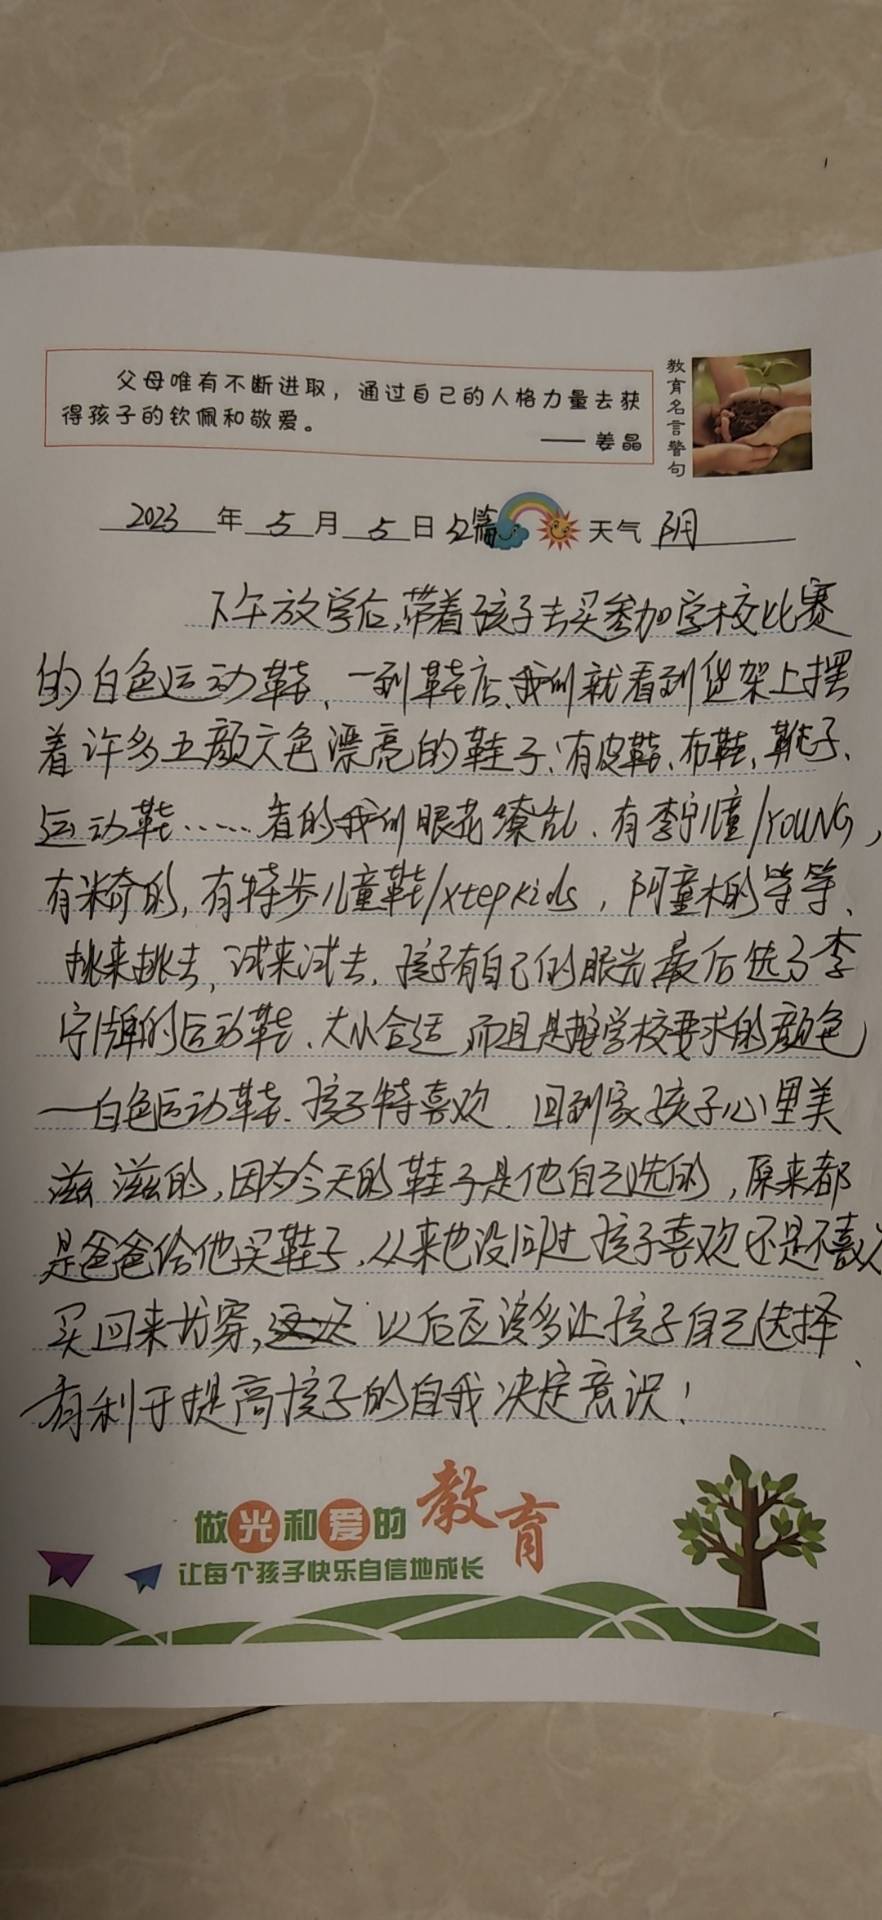 父母唯有不断进取，通过自己的人格力量去获
得孩子的钦佩和敬爱。
—— 姜晶
教育名言警句
2023年5月5日 52篇 天气 阴
下午放学后,带着孩子去买参加学校比赛
的白色运动鞋、一到鞋店、我们就看到货架上摆
着许多五颜六色漂亮的鞋子、有皮鞋、布鞋、靴子、
运动鞋……看的我们眼花缭乱、有李宁儿童/YOUNG,
有米奇的,有特步儿童鞋/xtepkids,阿童木的等等、
挑来挑去,试来试去,孩子有自己的眼光最后选了李
宁牌的运动鞋、大小合适,而且是按学校要求的颜色
—白色运动鞋、孩子特喜欢、回到家孩子心里美
滋滋的,因为今天的鞋子是他自己选的,原来都
是爸爸给他买鞋子,从来也没问过孩子喜欢还是不喜欢
买回来就穿, 以后应该多让孩子自己选择、
有利于提高孩子的自我决定意识!
做光和爱的教育
让每个孩子快乐自信地成长